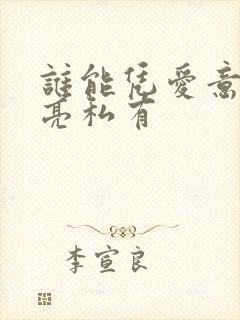 誰能凭愛意
亮私有
李宣良